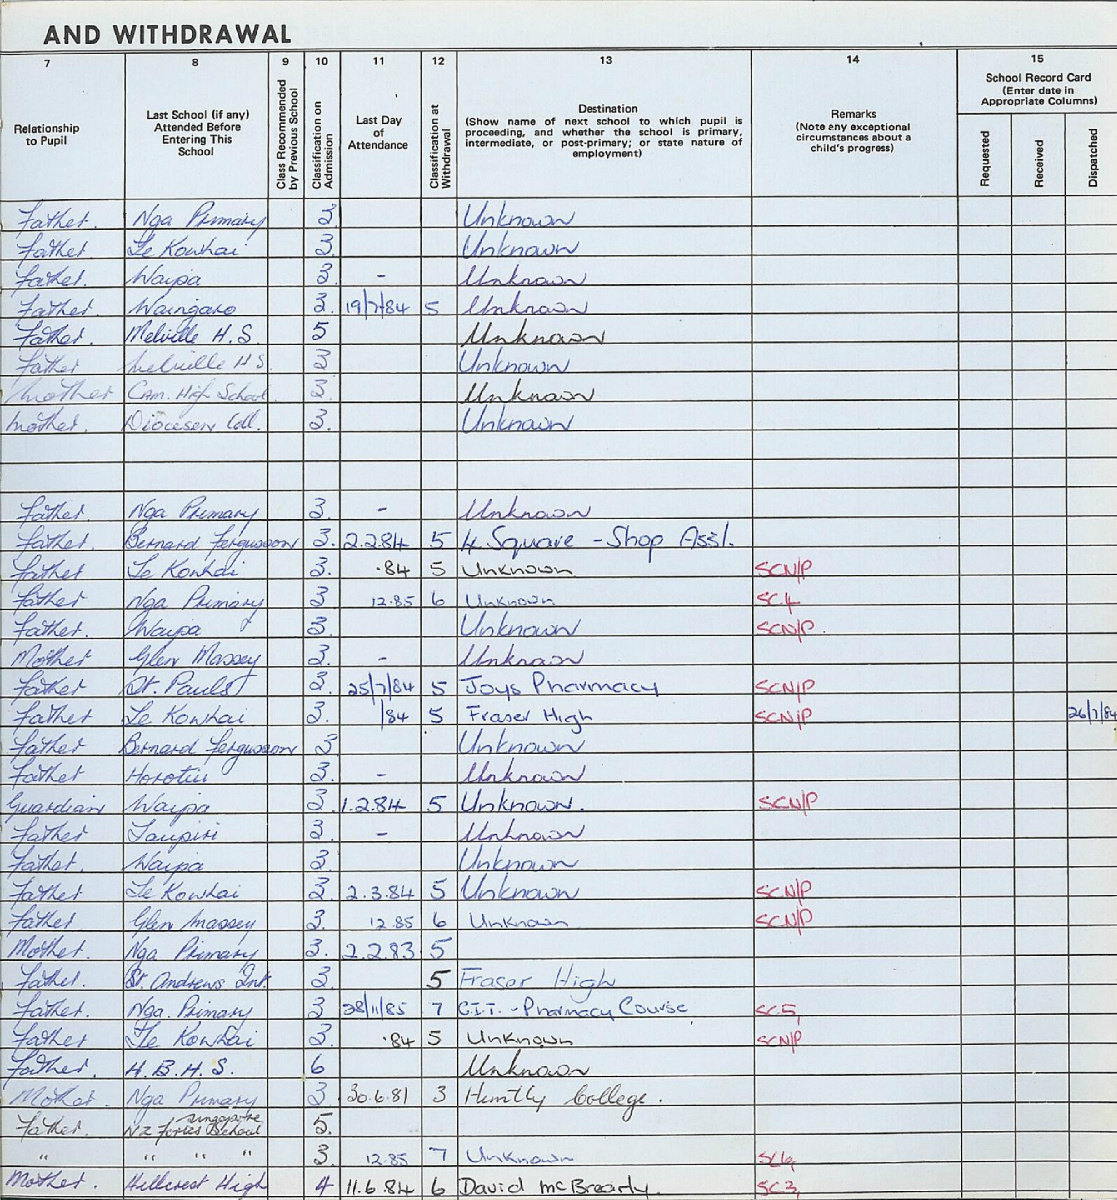 AND WITHDRAWAL
7 8 9 10 11 12 13 14 15
Relationship to Pupil
Last School (if any) Attended Before Entering This School
Class Recommended by Previous School
Classification on Admission
Last Day of Attendance
Classification at Withdrawal
Destination (Show name of next school to which pupil is proceeding, and whether the school is primary, intermediate, or post-primary; or state nature of employment)
Remarks (Note any exceptional circumstances about a child's progress)
School Record Card (Enter date in Appropriate Columns)
Requested
Received
Dispatched
Father. Nga Primary 3. Unknown
Father Te Kowhai 3. Unknown
Father. Waipa 3 - Unknown
Father Waingaro 3. 19/7/84 5 Unknown
Father Melville H.S. 5 Unknown
Father Melville H S. 3 Unknown
Mother Cam. High School 3. Unknown
Mother. Diocesen Coll. 3. Unknown
Father. Nga Primary 3. - Unknown
Father. Bernard Fergusson 3. 2.2.84 5 4 Square - Shop Asst.
Father Te Kowhai 3. .84 5 Unknown SCN/P
Father Nga Primary 3 12.85 6 Unknown SC4
Father. Waipa 3. Unknown SCN/P.
Mother Glen Massey 3. - Unknown
Father St. Pauls 3. 25/7/84 5 Joys Pharmacy SCN/P
Father Te Kowhai 3. /84 5 Fraser High SCN/P 26/7/84
Father Bernard Fergusson 3 Unknown
Father Horotiu 3. - Unknown
Guardian Waipa 3. 1.2.84 5 Unknown. SCN/P
Father Taupiri 3. - Unknown
Father. Waipa 3. Unknown
Father Te Kowhai 3. 2.3.84 5 Unknown SCN/P
Father Glen Massey 3. 12.85 6 Unknown SCN/P
Mother. Nga Primary 3. 2.2.83 5
Father. St. Andrews Int. 3. 5 Fraser High
Father. Nga. Primary 3 28/11/85 7 C.I.T. - Pharmacy Course SC5,
Father Te Kowhai 3. .84 5 Unknown SCN/P
Father. H.B.H.S. 6 Unknown
Mother. Nga Primary 3. 30.6.81 3 Huntly College.
Father. NZ Forces School Singapore 5.
" " " " 3. 12.85 7 Unknown SC6,
Mother. Hillcrest High 4 11.6.84 6 David McBready. SC3,